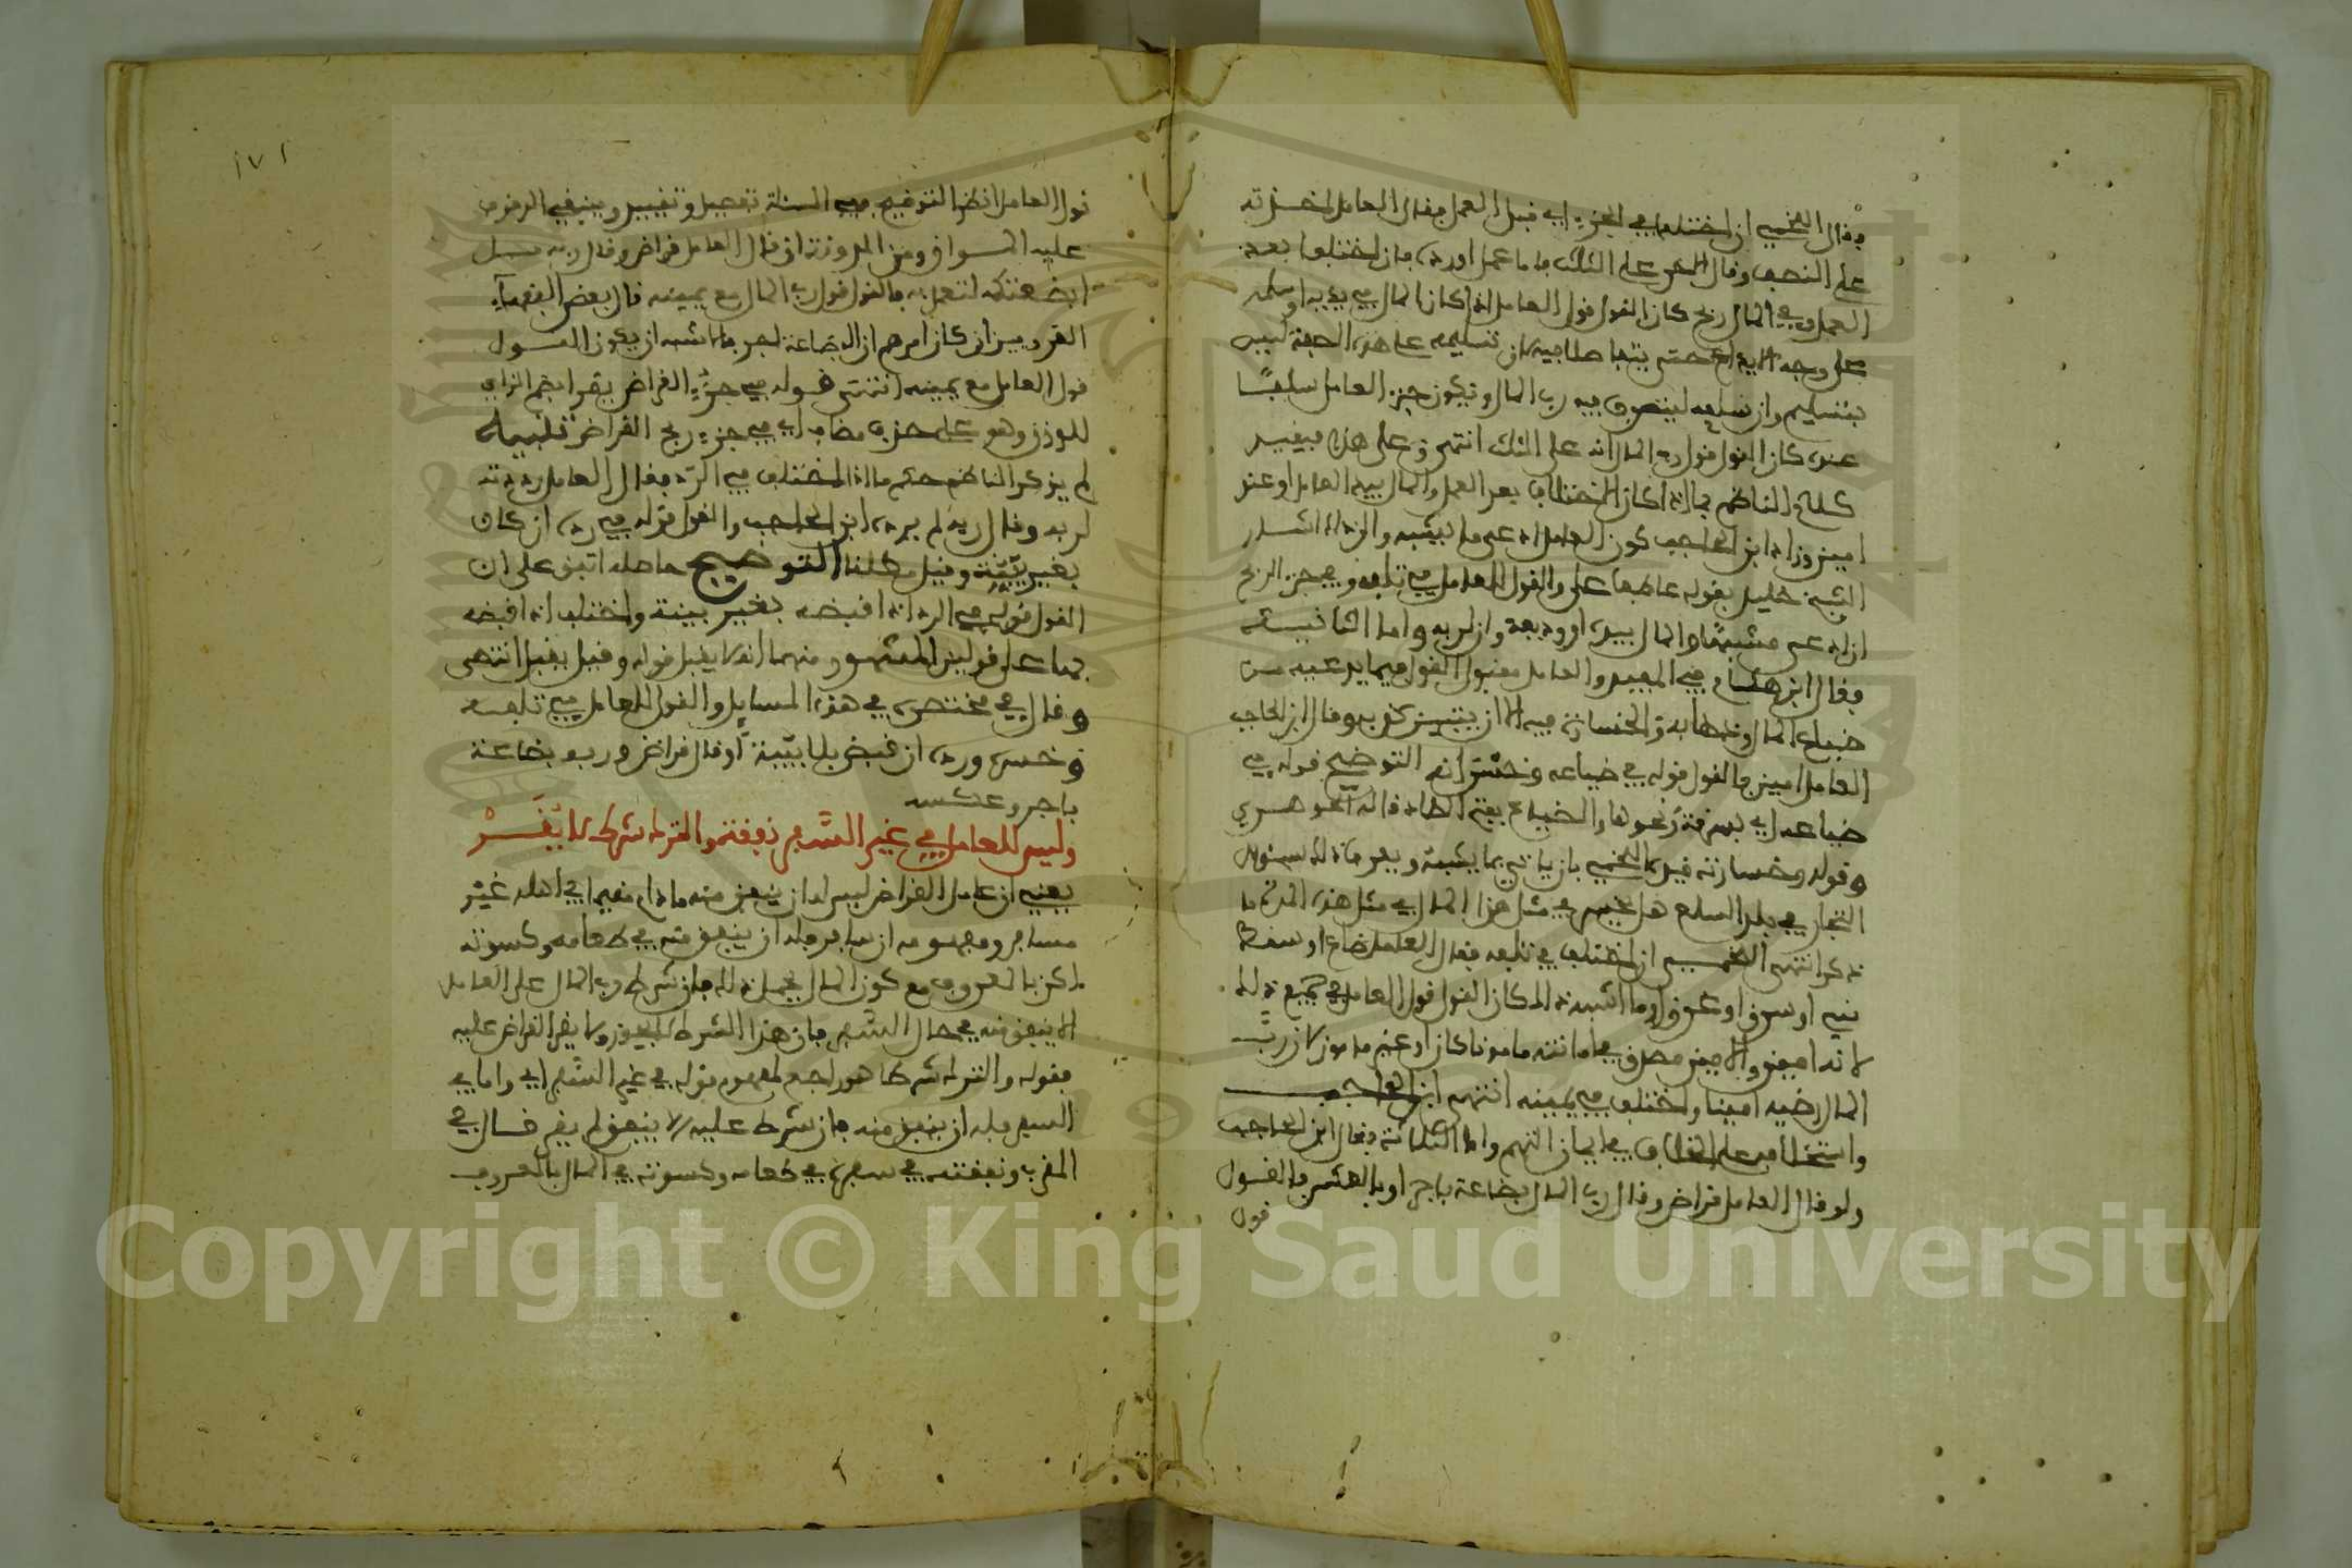 وقال اللخمي إن اختلفا في الجزء أي قبل العمل فقال العامل أخذته
على النصف وقال الآخر على الثلث فإما عمل أو رد، فإن اختلفا بعد
العمل وفي المال ربح كان القول قول العامل إذا كان المال في يديه أو سلمه
على وجه الإيداع حتى يتفاصلا فيه لأن تسليمه على هذه الصفة ليس
بتسليم وإن سلمه ليتصرف فيه رب المال وتكون جزء العامل سلفا
عنده كان القول قول رب المال أنه على الثلث انتهى وعلى هذا فيقيد
كلام الناظم بما إذا كان الاختلاف بعد العمل والمال بيد العامل أو عند
أمين وزاد ابن الحاجب كون العامل ادعى ما يشبه والى ذلك أشار
الشيخ خليل بقوله عاطفا على والقول للعامل في تلفه وفي جزء الربح
إن ادعى مشبها والمال بيده أو وديعة وإن لربه وأما الثانية
فقال ابن هشام في المفيد والعامل مقبول القول فيما يدعيه من
ضياع المال وذهابه والخسارة فيه إلا أن يتبين كذبه وقال ابن الحاجب
العامل أمين فالقول قوله في ضياعه وخسرانه التوضيح قوله في
ضياعه أي بسرقة ونحوها والضياع بفتح الضاد قاله الجوهري
وقوله وخسارته قيده اللخمي بأن ياتي بما يشبه ويعرف ذلك بسؤال
التجار في بلد السلع هل يخسر في مثل هذا المال في مثل هذه المدة ما
ذكر انتهى اللخمي إن اختلف في تلفه فقال العامل ضاع أو سقط
مني أو سرق أو غرق أو ما أشبه ذلك كان القول قول العامل في جميع ذلك
لأنه أمين والأمين مصدق في أمانته مأمونا كان أو غير مأمون لأن رب
المال رضيه أمينا واختلف في يمينه انتهى ابن الحاجب
واستحلافه على الخلاف في أيمان التهم وأما الثالثة فقال ابن الحاجب
ولو قال العامل قراض وقال رب المال بضاعة بأجر أو بالعكس فالقول
قول
١٧١
قول العامل انظر التوضيح ففي المسئلة تفصيل وتقييد وينبغي الوقوف
عليه المواق ومن المدونة إن قال العامل قراض وقال ربه بل
أبضعتكه لتعمل به فالقول قول رب المال مع يمينه قال بعض الفقهاء
القرويين إن كان أمرهم أن البضاعة بأجر فالأشبه أن يكون القول
قول العامل مع يمينه انتهى قوله في جزء القراض يقرأ بضم الزاي
للوزن وهو على حذف مضاف أي في جزء ربح القراض تنبيه
لم يذكر الناظم حكم ما إذا اختلف في الرد فقال العامل رددته
لربه وقال ربه لم يرده ابن الحاجب والقول قوله في رده إن كان
بغير بينة وقيل مطلقا التوضيح حاصله اتفق على أن
القول قوله في الرد إذا قبضه بغير بينة واختلف إذا قبضه
بها على قولين المشهور منهما أنه لا يقبل قوله وقيل يقبل انتهى
وقال في مختصره في هذه المسائل والقول للعامل في تلفه
وخسره ورده إن قبض بلا بينة أو قال قراض وربه بضاعة
بأجر وعكسه
وليس للعامل في غير السفر نفقة والترك شرط لا يقر
يعني أن عامل القراض ليس له أن ينفق منه ما دام مقيما في أهله غير
مسافر ومفهومه إن سافر فله أن ينفق منه في طعامه وكسوته
لكن بالمعروف مع كون المال يحمل ذلك فإن شرط رب المال على العامل
ألا ينفق منه في حال السفر فإن هذا الشرط لا يجوز ولا يقر القراض عليه
فقوله والترك شرطا هو راجع لمفهوم قوله في غير السفر أي وأما في
السفر فله أن ينفق منه فإن شرط عليه ألا ينفق لم يقر قال في
المقرب ونفقته في سفره في طعامه وكسوته في المال بالمعروف